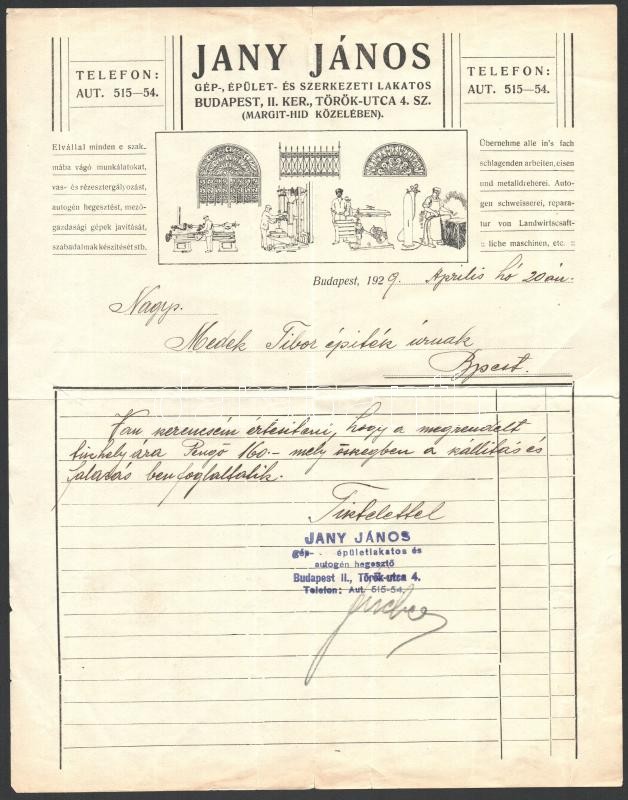 TELEFON:
AUT. 515—54.
JANY JÁNOS
GÉP-, ÉPÜLET- ÉS SZERKEZETI LAKATOS
BUDAPEST, II. KER., TÖRÖK-UTCA 4. SZ.
(MARGIT-HID KÖZELÉBEN).
TELEFON:
AUT. 515—54.
Elvállal minden e szak-
mába vágó munkálatokat,
vas- és rézesztergályozást,
autogén hegesztést, mező-
gazdasági gépek javitását,
szabadalmak készitését stb.
Übernehme alle in's fach
schlagenden arbeiten, eisen
und metalldreherei. Auto-
gen schweisserei, repara-
tur von Landwirtscaft-
:: liche maschinen, etc. ::
Budapest, 1929. Április hó 20án.
Nagys.
Medek Tibor épiték úrnak
Bpest.
Van szerencsém értesiteni, hogy a megrendelt
tüzhely ára Pengő 160.- mely összegben a szállitás és
falazás benfoglaltatik.
Tisztelettel
JANY JÁNOS
gép- épületlakatos és
autogén hegesztő
Budapest II., Török-utca 4.
Telefon: Aut. 515-54.